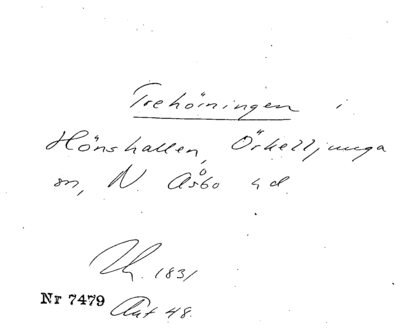 Trehörningen i
Hönshallen, Örkelljunga
sn, N. Åsbo hd.
Th. 1831
Nr 7479 Aut 48.